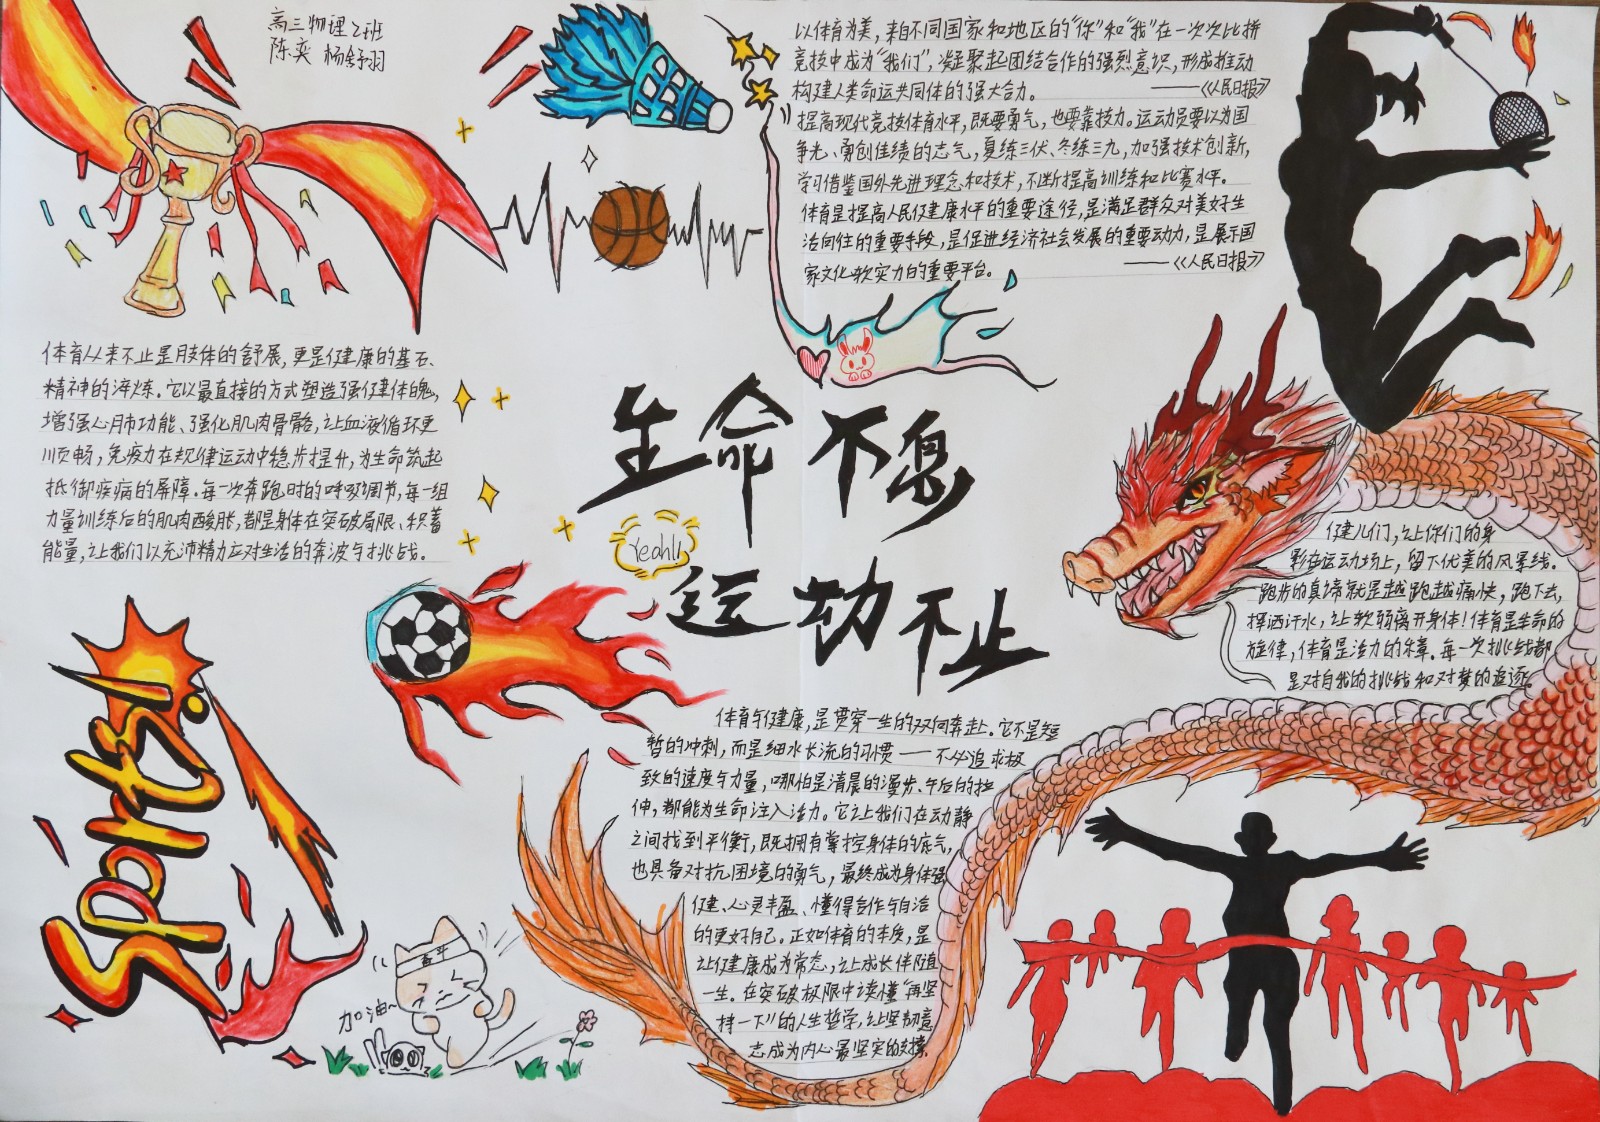 高三物理2班
陈奕 杨舒羽
以体育为美，来自不同国家和地区的“你”和“我”在一次次比拼
竞技中成为“我们”，凝聚起团结合作的强烈意识，形成推动
构建人类命运共同体的强大合力。 ——《人民日报》
提高现代竞技体育水平，既要勇气，也要靠技力。运动员要以为国
争光、勇创佳绩的志气，夏练三伏、冬练三九，加强技术创新，
学习借鉴国外先进理念和技术，不断提高训练和比赛水平。
体育是提高人民健康水平的重要途径，是满足群众对美好生
活向往的重要手段，是促进经济社会发展的重要动力，是展示国
家文化软实力的重要平台。 ——《人民日报》
体育从来不止是肢体的舒展，更是健康的基石、
精神的淬炼。它以最直接的方式塑造强健体魄，
增强心肺功能、强化肌肉骨骼，让血液循环更
顺畅，免疫力在规律运动中稳步提升，为生命筑起
抵御疾病的屏障。每一次奔跑时的呼吸调节，每一组
力量训练后的肌肉酸胀，都是身体在突破局限、积蓄
能量，让我们以充沛精力应对生活的奔波与挑战。
生命不息
Yeah!
运动不止
健儿们，让你们的身
影在运动场上，留下优美的风景线。
跑步的真谛就是越跑越痛快，跑下去，
挥洒汗水，让软弱离开身体！体育是生命的
旋律，体育是活力的乐章。每一次挑战都
是对自我的挑战和对梦的追逐。
Sports!
体育与健康，是贯穿一生的双向奔赴。它不是短
暂的冲刺，而是细水长流的习惯——不必追求极
致的速度与力量，哪怕是清晨的漫步、午后的拉
伸，都能为生命注入活力。它让我们在动静
之间找到平衡，既拥有掌控身体的底气，
也具备对抗困境的勇气，最终成为身体强
健、心灵丰盈、懂得合作与自洽
的更好自己。正如体育的本质，是
让健康成为常态，让成长伴随
一生。在突破极限中读懂“再坚
持一下”的人生哲学，让坚韧意
志成为内心最坚实的支撑。
加油~